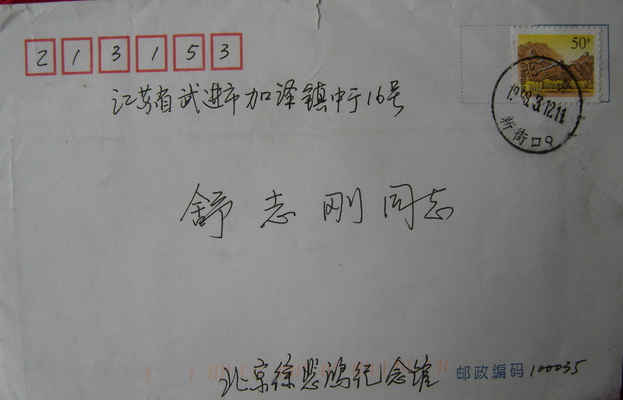 213153
50分
江苏省武进市加泽镇中于16号
1998.3.12.11
新街口9
舒志刚同志
北京徐悲鸿纪念馆 邮政编码 100035